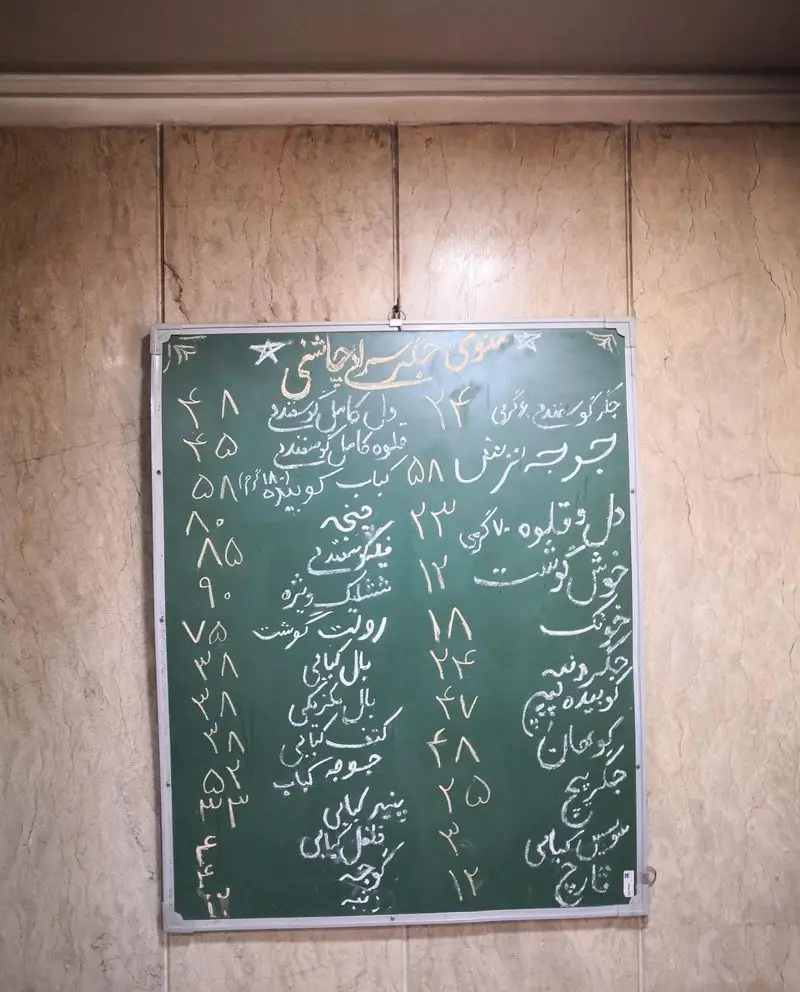 منوی جگر سرای چاشنی
جگر گوسفندی ۶۰ گرمی ۲۴
جوجه ترش ۵۸
دل و قلوه ۷۰ گرمی ۲۳
خوش گوشت ۱۲
خونک ۱۸
جگر دنبه ۲۴
کوبیده پیپ ۴۷
کوهان ۴۸
جگر پیچ ۲۵
سوسیس کبابی ۳
قارچ ۱۲
دل کامل گوسفندی ۴۸
قلوه کامل گوسفندی ۴۵
کباب کوبیده (۱۸۰ گرم) ۵۸
پنجه ۸۰
فیله گوسفندی ۸۵
ششلیک ویژه ۹۰
رولت گوشت ۷۵
بال کبابی ۳۸
بال مکزیکی ۳۸
کتف کبابی ۳۸
جوجه کباب ۵۲
پنیر کبابی ۳۳
فلفل کبابی ۴
گوجه ۴
دنبه